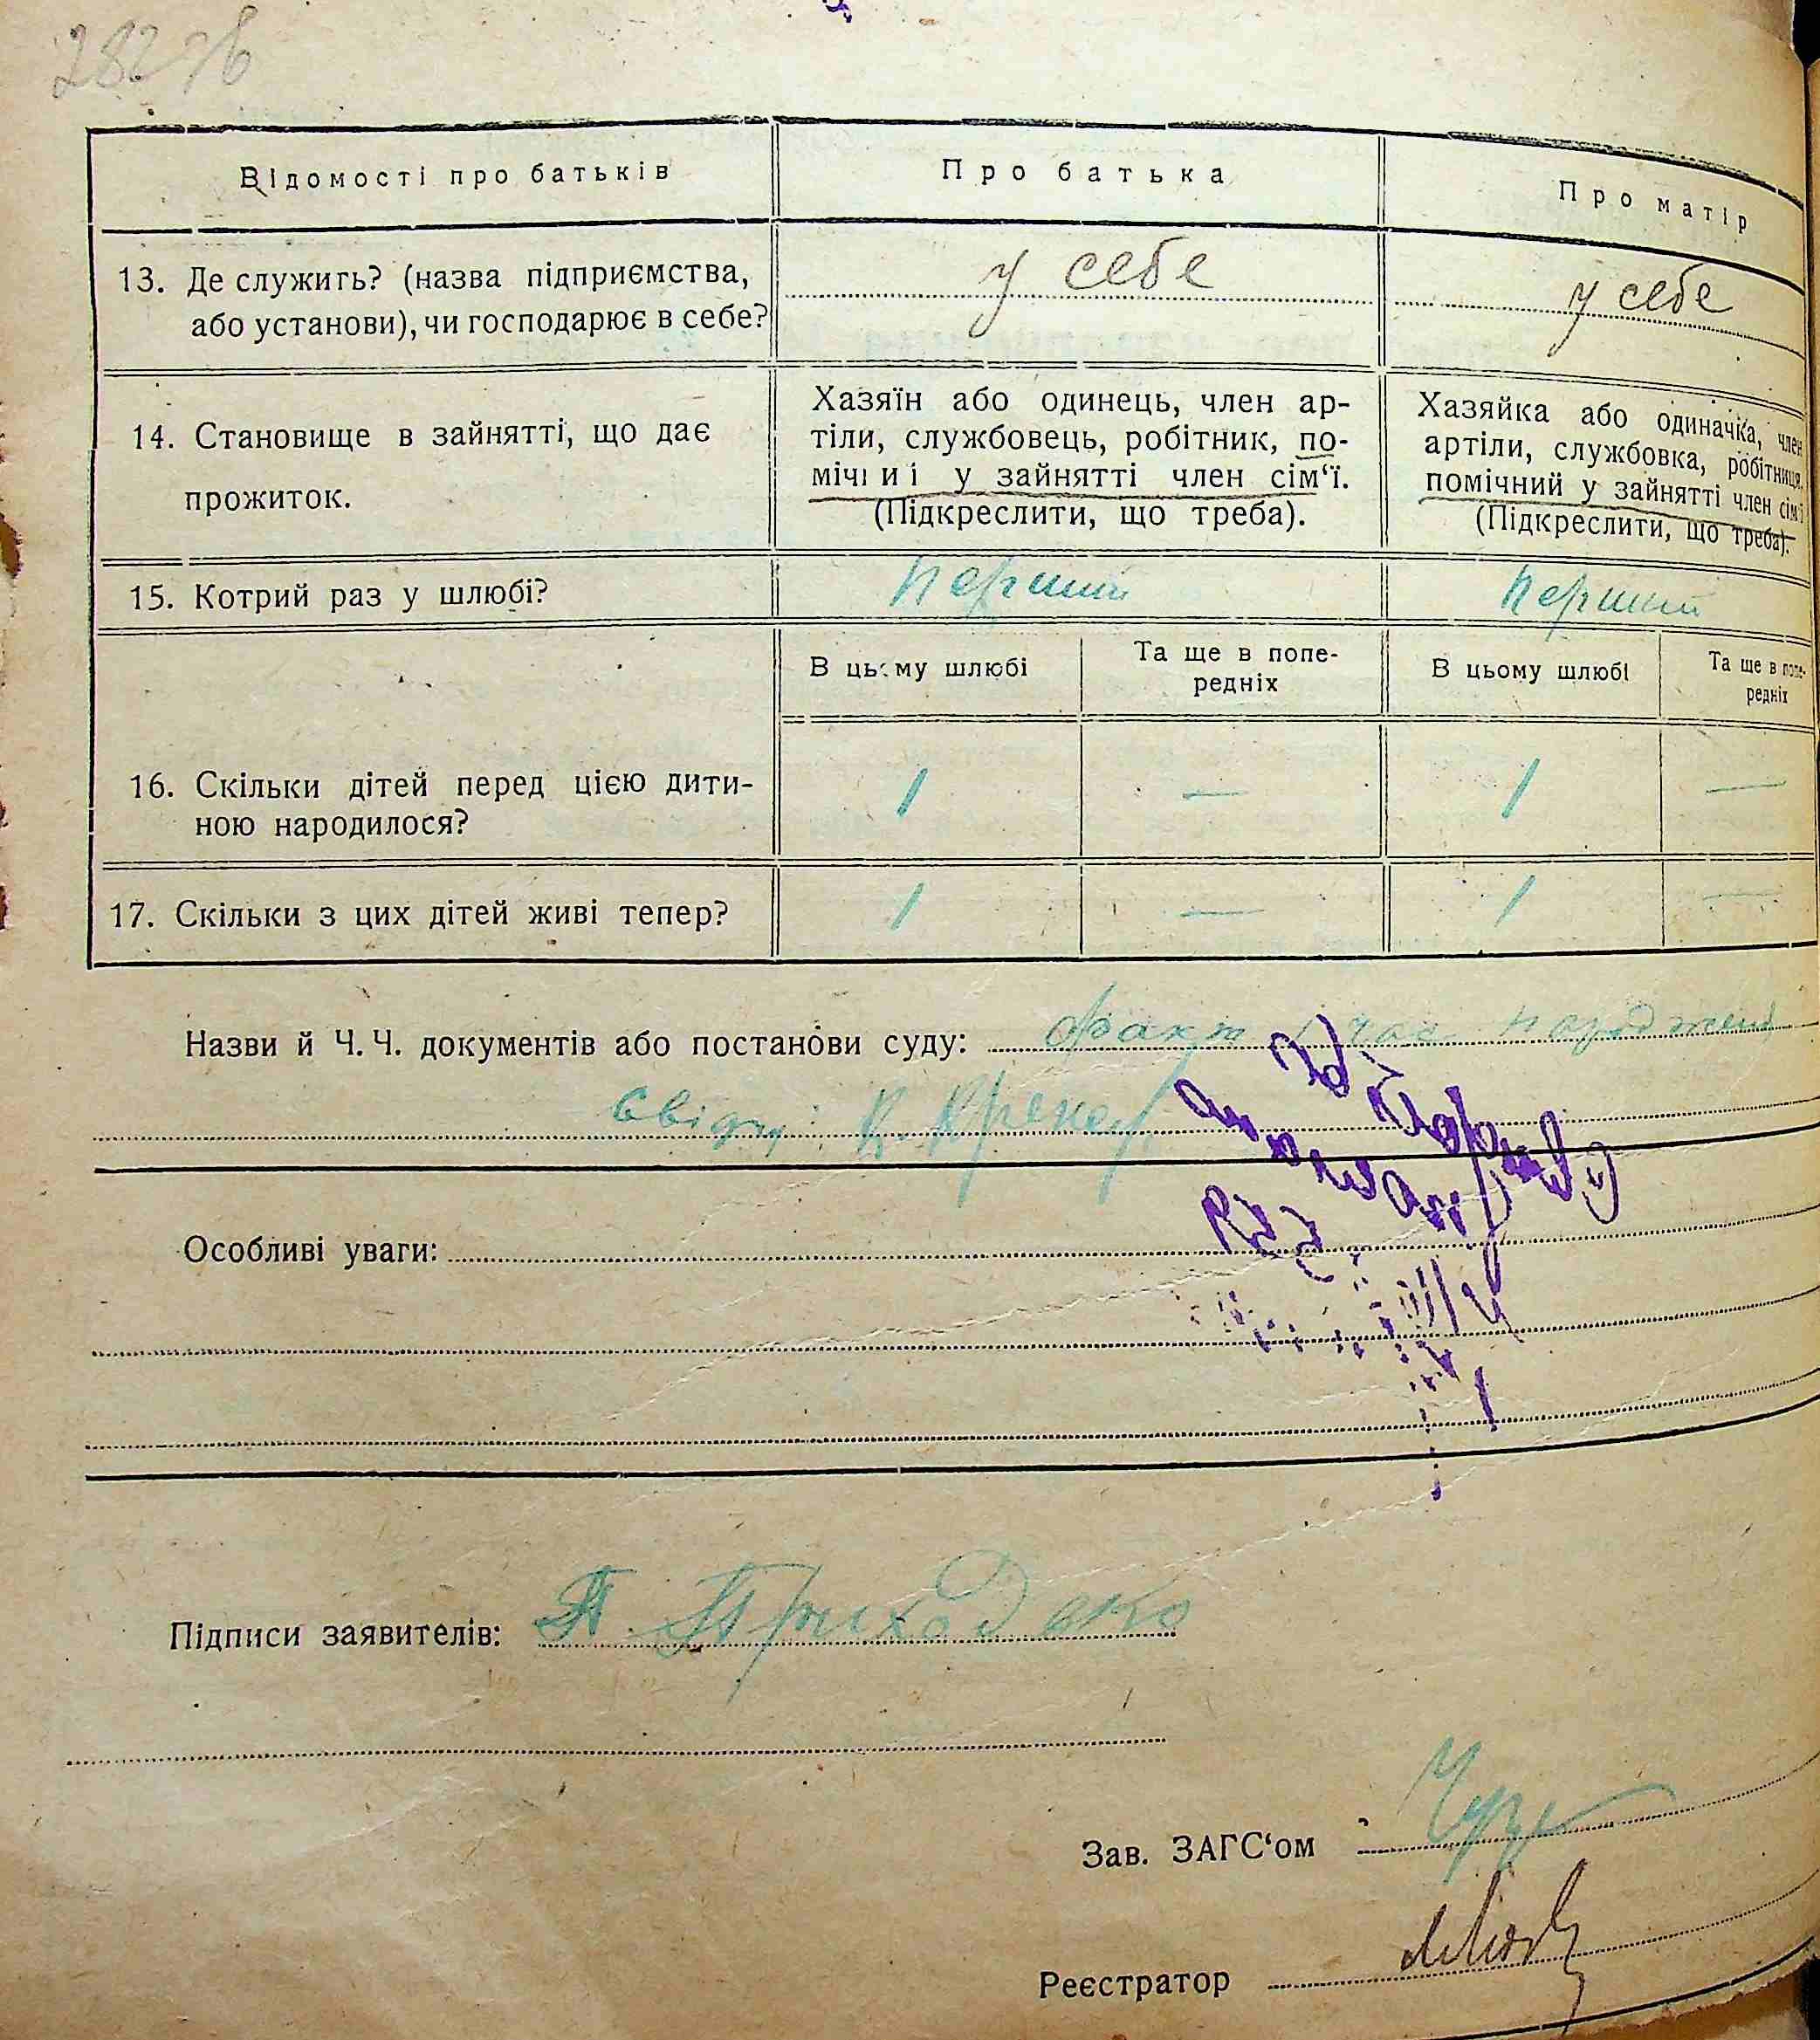 282 зв
Відомості про батьків
Про батька
Про матір
13. Де служить? (назва підприємства,
або установи), чи господарює в себе?
у себе
у себе
14. Становище в зайнятті, що дає
прожиток.
Хазяїн або одинець, член ар-
тіли, службовець, робітник, по-
мічниі у зайнятті член сім‘ї.
(Підкреслити, що треба).
Хазяйка або одиначка, член
артіли, службовка, робітниця,
помічний у зайнятті член сім‘ї
(Підкреслити, що треба).
15. Котрий раз у шлюбі?
перший
перший
В цьому шлюбі
Та ще в попе-
редніх
В цьому шлюбі
Та ще в попе-
редніх
16. Скільки дітей перед цією дити-
ною народилося?
1 — 1 —
17. Скільки з цих дітей живі тепер?
1 — 1 —
Назви й Ч. Ч. документів або постанови суду: факт і час народжен
свідч:
Особливі уваги:
Підписи заявителів: П. Приходько
Зав. ЗАГС‘ом
Реєстратор